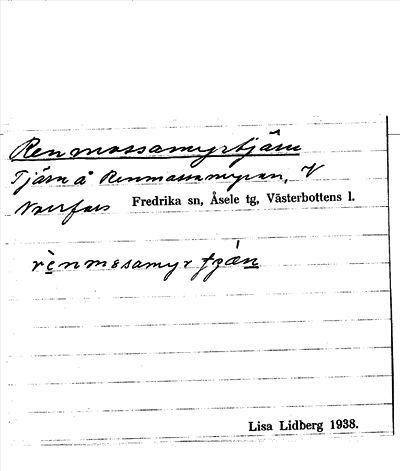 Renmossamyrtjärn
Tjärn å Renmossamyran, V
Fredrika sn, Åsele tg, Västerbottens l.
rènmosamyr
Lisa Lidberg 1938.